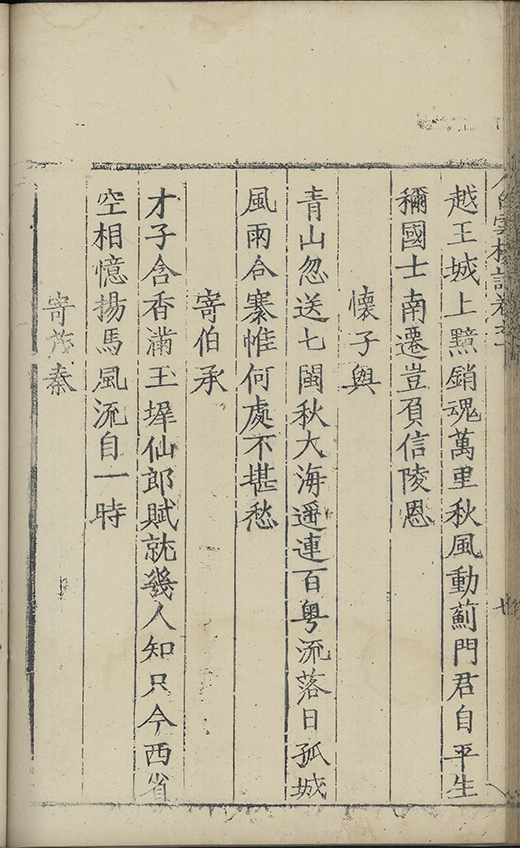 樓詩卷之
越王城上黯銷魂萬里秋風動薊門君自平生
穪國士南遷豈負信陵恩
懷子與
青山忽送七閩秋大海遥連百粤流落日孤城
風雨合褰帷何處不堪愁
寄伯承
才子含香滿玉墀仙郎賦就幾人知只今西省
空相憶揚馬風流自一時
寄茂秦